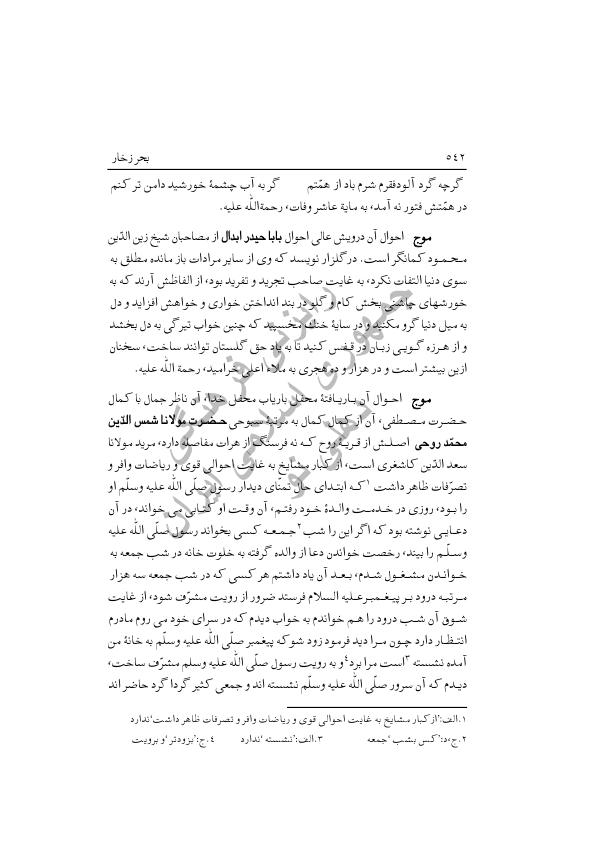 ۵۴۲ بحر زخار
گرچه گرد آلود فقرم شرم باد از همّتم گر به آب چشمۀ خورشید دامن تر کنم
در همّتش فتور نه آمد، به مایۀ عاشر وفات، رحمةالله علیه.
موج احوال آن درویش عالی احوال بابا حیدر ابدال از مصاحبان شیخ زین الدّین
محمود کمانگر است. در گلزار نویسد که وی از سایر مرادات باز مانده مطلق به
سوی دنیا التفات نکرد، به غایت صاحب تجرید و تفرید بود، از الفاظش آرند که به
خورشهای چاشنی بخش کام و گلو در بند انداختن خواری و خواهش افزاید و دل
به میل دنیا گرو مکنید و در سایۀ خنک مخسپید که چنین خواب تیرگی به دل بخشد
و از هرزه گویی زبان در قفس کنید تا به یاد حق گلستان توانند ساخت، سخنان
ازین بیشتر است و در هزار و ده هجری به ملاء اعلی خرامید، رحمة الله علیه.
موج احوال آن باریافتۀ محفل باریاب محفل خدا، آن ناظر جمال با کمال
حضرت مصطفی، آن از کمال کمال به مرتبۀ سبوحی حضرت مولانا شمس الدّین
محمّد روحی اصلش از قریۀ روح که نه فرسنگ از هرات مفاصله دارد، مرید مولانا
سعد الدّین کاشغری است، از کبار مشایخ به غایت احوالی قوی و ریاضات وافر و
تصرّفات ظاهر داشت۱ که ابتدای حال تمنّای دیدار رسول صلّی الله علیه وسلّم او
را بود، روزی در خدمت والدۀ خود رفتم، آن وقت او کتابی می خواند، در آن
دعایی نوشته بود که اگر این را شب۲ جمعه کسی بخواند رسول صلّی الله علیه
وسلّم را بیند، رخصت خواندن دعا از والده گرفته به خلوت خانه در شب جمعه به
خواندن مشغول شدم، بعد آن یاد داشتم هر کسی که در شب جمعه سه هزار
مرتبه درود بر پیغمبرعلیه السلام فرستد ضرور از رویت مشرّف شود، از غایت
شوق آن شب درود را هم خواندم به خواب دیدم که در سرای خود می روم مادرم
انتظار دارد چون مرا دید فرمود زود شو که پیغمبر صلّی الله علیه وسلّم به خانۀ من
آمده نشسته۳ است مرا برد۴ و به رویت رسول صلّی الله علیه وسلم مشرّف ساخت،
دیدم که آن سرور صلّی الله علیه وسلّم نشسته اند و جمعی کثیر گردا گرد حاضر اند
۱.الف:'از کبار مشایخ به غایت احوالی قوی و ریاضات وافر و تصرفات ظاهر داشت'ندارد
۲.ج،د:'کس بشب 'جمعه ۳.الف:'نشسته 'ندارد ۴.ج:'بزودتر 'و برویت